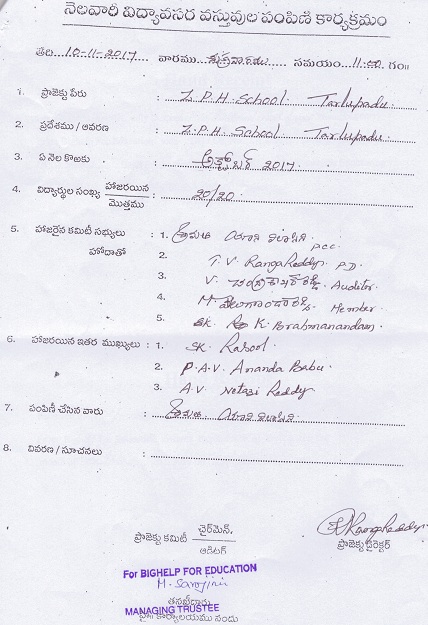 నెలవారీ విద్యావసర వస్తువుల పంపిణి కార్యక్రమం
తేది 10-11-2017 వారము శుక్రవారము సమయం 11.00 గం॥
1. ప్రాజెక్టు పేరు : Z.P.H. School. Tarlupadu.
2. ప్రదేశము / ఆవరణ : Z.P.H. School Tarlupadu.
3. ఏ నెల కొఱకు : అక్టోబర్ 2017.
4. విద్యార్థుల సంఖ్య హాజరయిన / మొత్తము : 20/20.
5. హాజరైన కమిటీ సభ్యులు : 1. శ్రీమతి PCC.
హోదాతో 2. T.V. Ranga Reddy. P.D.
3. V. Auditor.
4. M. Member
5. SK. K. Brahmanandam.
6. హాజరయిన ఇతర ముఖ్యులు : 1. SK. Rasool.
2. P.A.V. Ananda Babu.
3. A.V. Notazi Reddy
7. పంపిణీ చేసిన వారు : శ్రీమతి
8. వివరణ / సూచనలు :
Ranga Reddy
ప్రాజెక్టు కమిటీ చైర్‌మెన్. / ఆడిటర్ ప్రాజెక్టు డైరెక్టర్
For BIGHELP FOR EDUCATION
M. Sarojini
MANAGING TRUSTEE
కార్యాలయము నందు